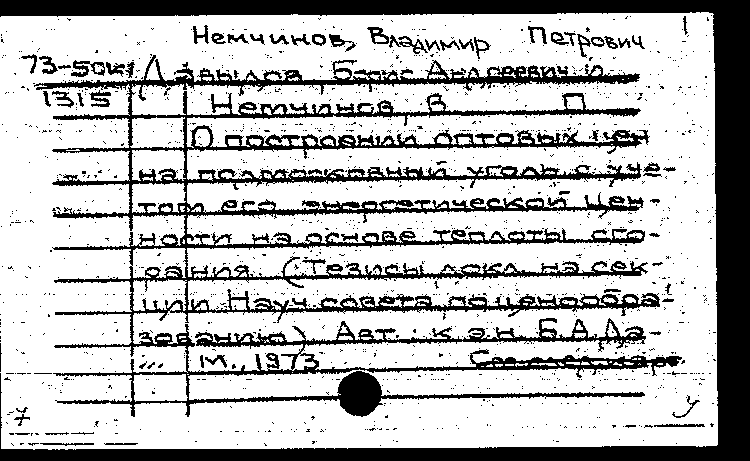 Немчинов, Владимир Петрович
73-50к Давыдов, Борис Андреевич и
1315 Немчинов, В. П.
О построении оптовых цен
на подмосковный уголь с уче-
том его энергетической цен-
ности на основе теплоты сго-
рания. (Тезисы докл. на сек-
ции Науч. совета по ценообра-
зованию). Авт.: к.э.н. Б.А. Да-
... М., 1973 См. след. карт.
7 У